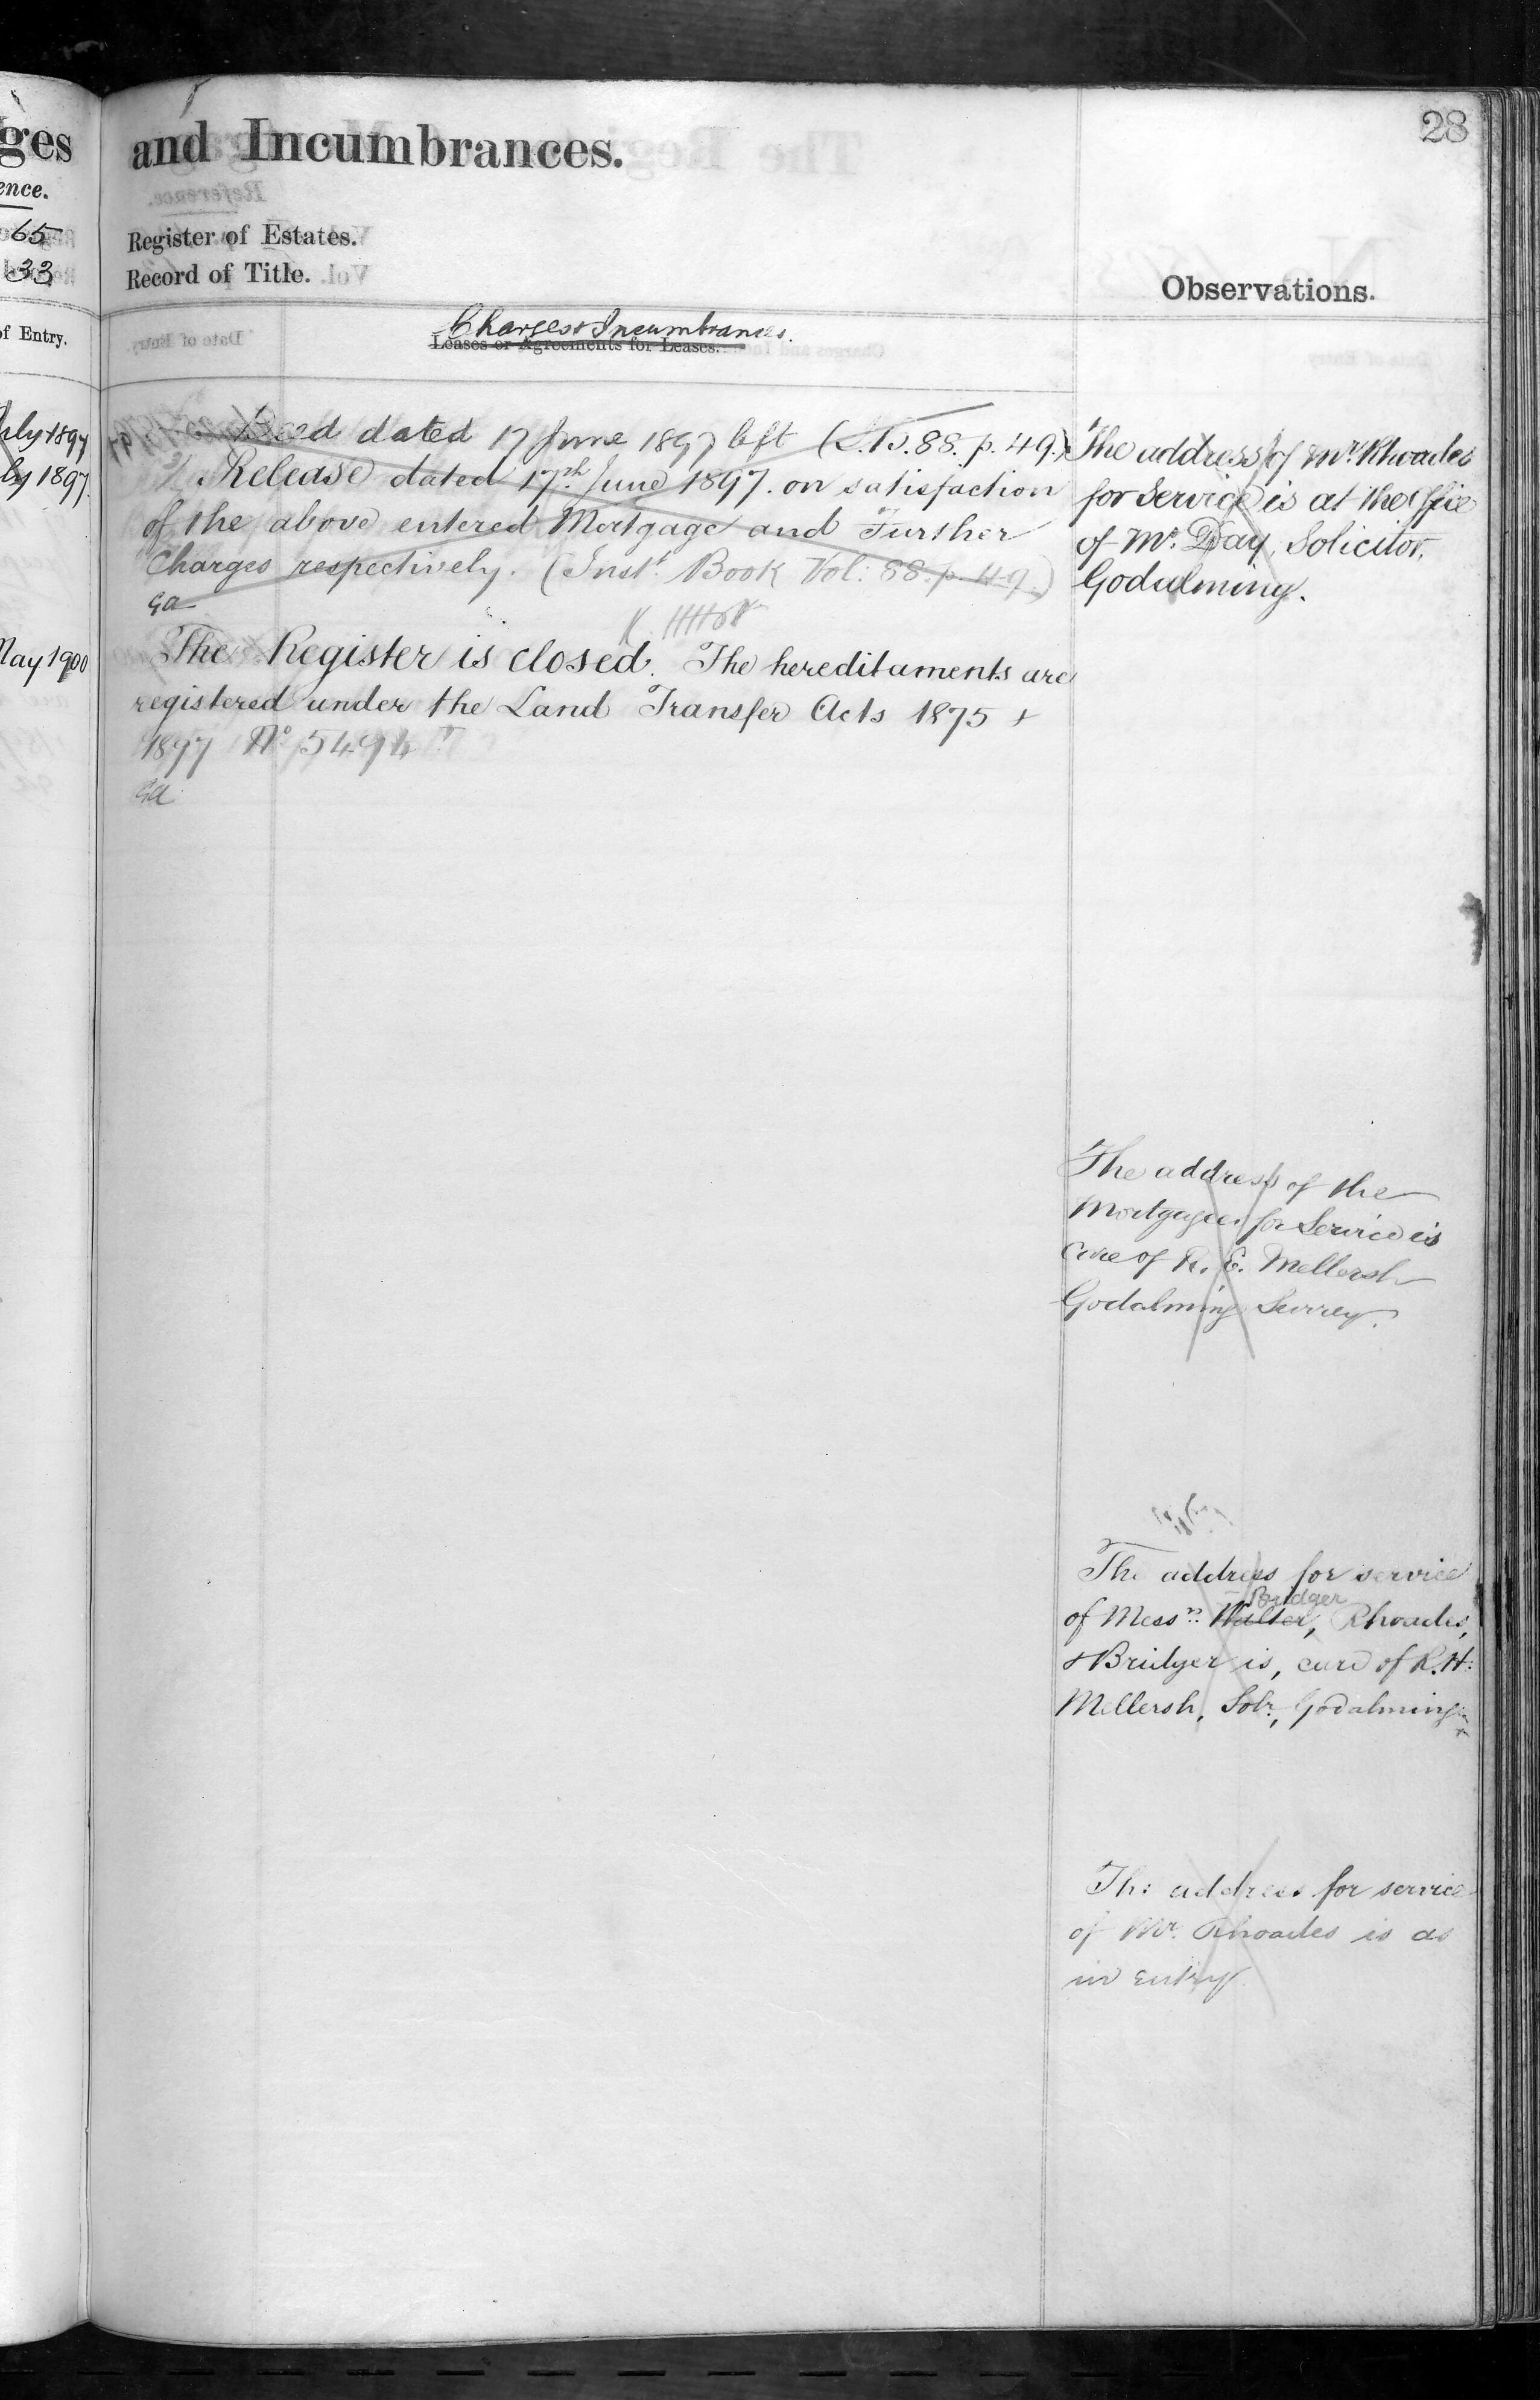 ges
ence.
65
33
of Entry.
July 1897
ly 1897.
May 1900
28
and Incumbrances.
Register of Estates.
Record of Title.
Observations.
Charges & Incumbrances.
Leases or Agreements for Leases.
Deed dated 17 June 1897 left (I.B. 88. p. 49.)
Release dated 17th June 1897. on satisfaction
of the above entered Mortgage and Further
Charges respectively. (Inst. Book Vol: 88. p. 49.)
GA
The Register is closed. The hereditaments are
registered under the Land Transfer Acts 1875 &
1897 No 5494
GA
The address of Mr. Rhoades
for Service is at the Office
of Mr. Day, Solicitor,
Godalming.
The address of the
Mortgagees for Service is
care of R. E. Mellersh
Godalming Surrey.
The address for service
Bridger
of Messrs. Walter, Rhoades,
& Bridger is, care of R. H.
Mellersh, Solr., Godalming
The address for service
of Mr. Rhoades is as
in entry